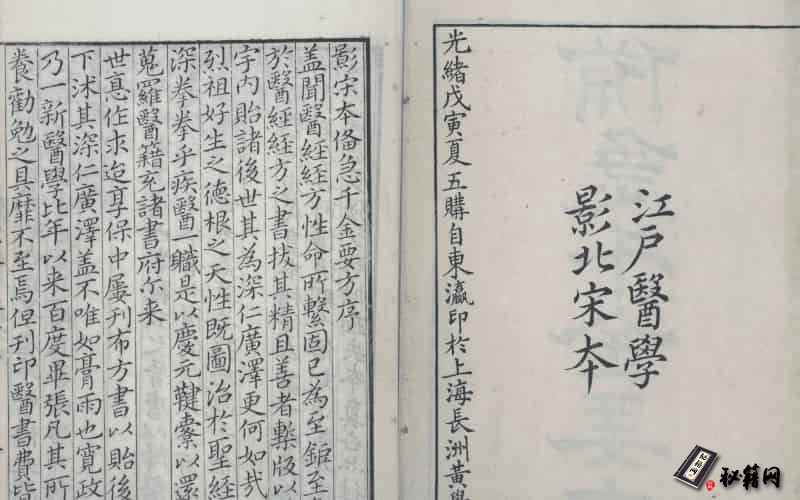 江戶醫學
影北宋本
光緒戊寅夏五購自東瀛印於上海長洲黃學
影宋本備急千金要方序
蓋聞醫經經方性命所繫固已為至鉅至
於醫經經方之書拔其精且善者槧版以
宇內貽諸後世其為深仁廣澤更何如哉
烈祖好生之德根之天性既圖治於聖經
深拳拳乎疾醫一職是以慶元鞬櫜以還
蒐羅醫籍充諸書府尓来
世悳作求迨享保中屢刊布方書以貽後
下沭其深仁廣澤盖不唯如膏雨也寬政
乃一新醫學比年以来百度畢張凡其所
養勸勉之具靡不至焉但刊印醫書費皆
秘籍网